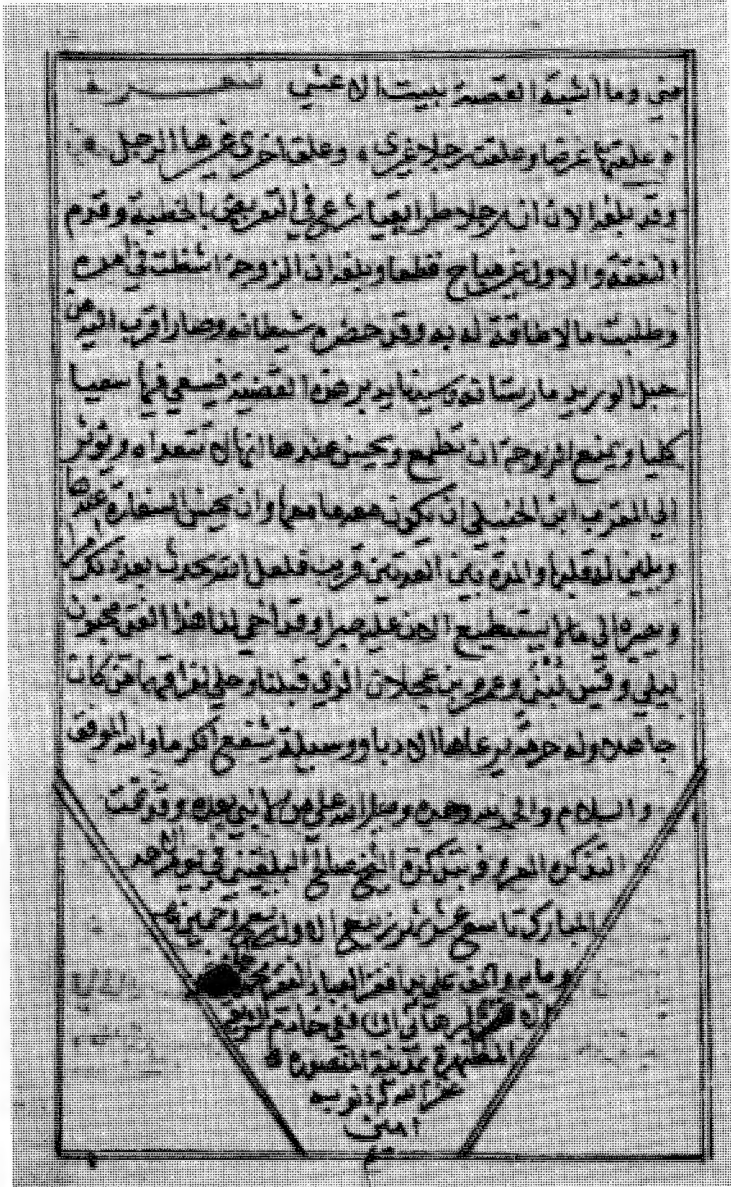 مني وما اشبه القصة ببيت الاعشي شعر
علقتها عرضا وعلقت رجلا غيري وعلق اخري غيرها الرجل
وقد بلغه الان ان رجلا طرابقيا شرع في التعريض بالخطبة وقدم
النفقة والاول غير مباح قطعا وبلغه ان الزوجة اشغلت في امره
وطلبت ما لا طاقة له به وقد حضره شيطانه وصار اقرب اليه من
حبل الوريد مارستانه وسيدنا يدبر هذه القضية فيسعي فيها سعيا
كليا ويمنع الزوجة ان تطمع ويحسن عندها انها لا تتعداه ويؤثر
الي المقرب ابن الحنبلي ان يكون معهما وان يحسن السفارة عندها
ويلين له قلبها والمدة بين العدتين قريب فلعل الله يحدث بعد ذلك امرا
ويصيره الي ما لا يستطيع الان عليه صبرا وقد احي لنا هذا الفتي مجنون
ليلي وقيس لبني وعمرو بن عجلان الذي قبلنا وحلي فمن كان
جاهلا وله حرمة يرعاها الادبا ووسيلة يشفع الكرما والله الموفق
والسلام والحمد لله وحده وصلي الله علي من لا نبي بعده وقد تمت
التذكرة المعروفة بتذكرة الشيخ صالح البلقيني في يوم الاحد
المبارك تاسع عشر شهر ربيع الاول
وماية والف علي يد افقر العباد الفقير
خادم
بمدينة المنصورة
غفر الله له ذنوبه
امين